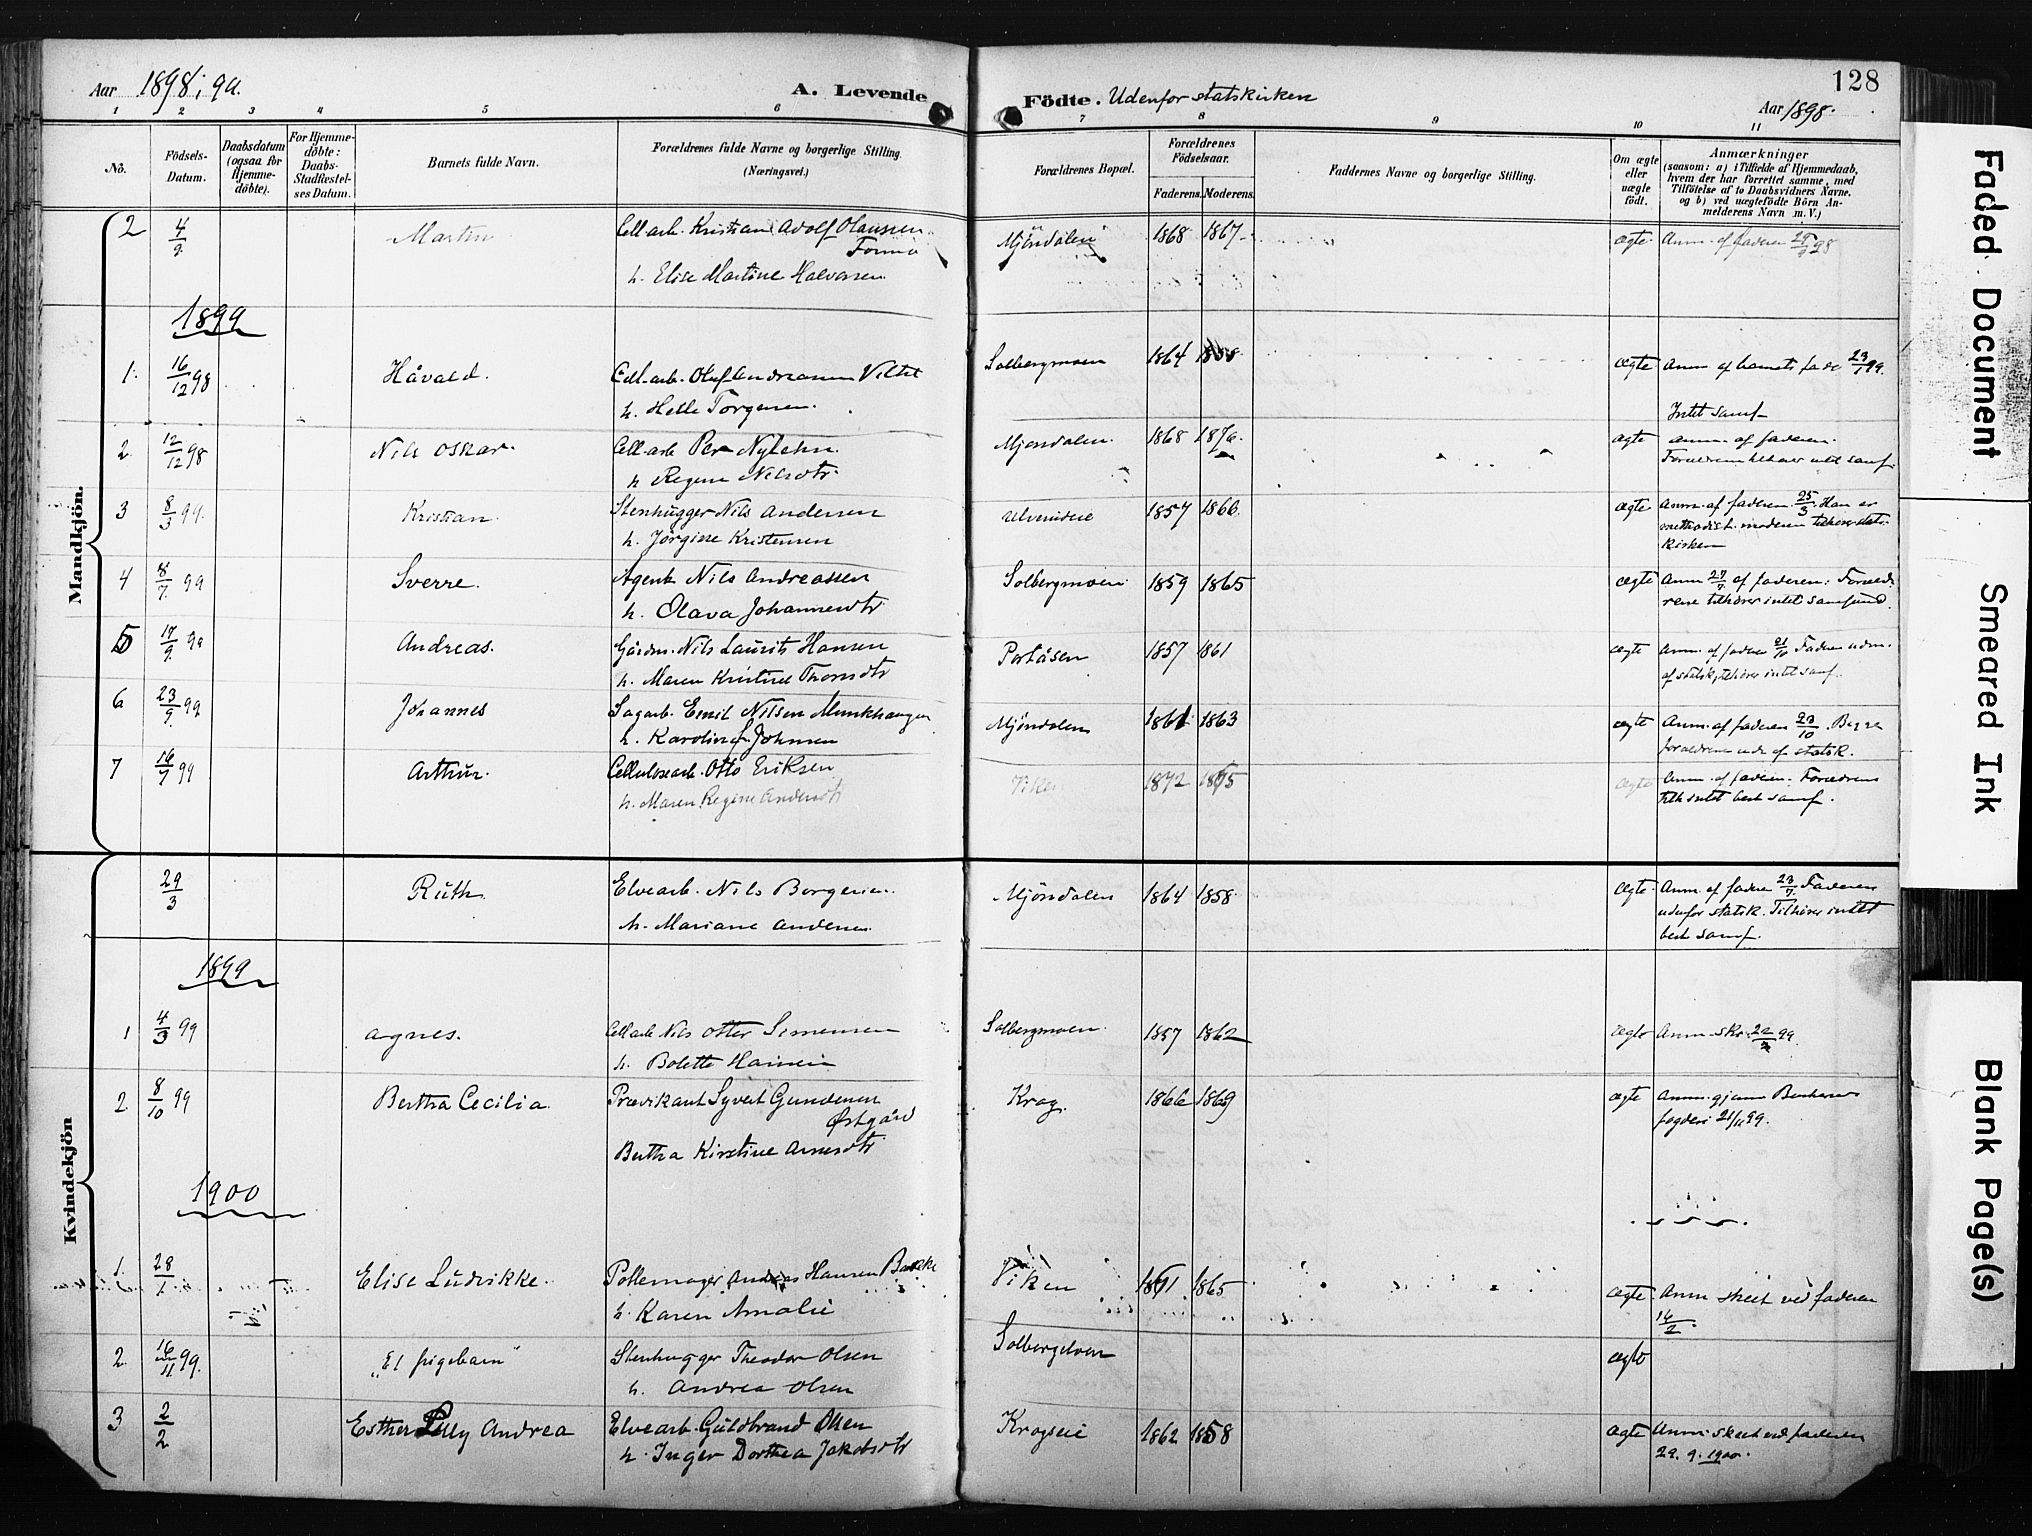 Aar 1898, 99.
A. Levende Födte. Udenfor statskirken
Aar 1898.
128
1 2 3 4 5 6 7 8 9 10 11
No.
Födsels-Datum.
Daabsdatum (ogsaa for Hjemme-döbte).
For Hjemme-döbte: Daabs-Stadfæstel-ses Datum.
Barnets fulde Navn.
Forældrenes fulde Navne og borgerlige Stilling. (Næringsvei.)
Forældrenes Bopæl.
Forældrenes Födselsaar.
Faderens. Moderens.
Faddernes Navne og borgerlige Stilling.
Om ægte eller uægte födt.
Anmærkninger
(saasom: a) i Tilfælde af Hjemmedaab,
hvem der har forrettet samme, med
Tilföielse af to Daabsvidners Navne,
og b) ved uægtefödte Börn An-
melderens Navn m. V.)
Mandkjön.
2 4/9 Martin Cell.arb. Kristian Adolf Olaussen Mjöndalen 1868 1867 ægte Anm. af faderen
h. Elise Martine Halvorsen
1899
1. 16/12 98 Håvald. Cell.arb. Oluf Andreassen Solbergmoen 1864 ægte Anm. af barnets fader 23/1 99.
h. Helle Torgersen. Intet samf.
2. 12/12 98 Nils Oskar. Cell.arb Per Mjöndalen. 1868 ægte anm. af faderen.
h Regine Nilsdtr. intet samf.
3 8/3 99. Kristian. Stenhugger Nils Andersen 1857 1866. ægte Anm. af faderen 25/3. Han er
h. Jörgine Kristensen methodist. moderen tilhører stats-
kirken
4 8/7 99 Sverre. Agent Nils Andreassen Solbergmoen. 1859 1865 ægte Anm 27/7 af faderen: Foræld-
h. Olava Johannesdtr rene tilhører intet samfund.
5 17/9 99 Andreas. Gårdm. Nils Laurits Hansen Portåsen 1857 1861 ægte Anm. af fader 21/10 Faderen udm.
h. Maren Kristine Thorsdtr af statsk, tilhører intet samf.
6 23/9 99 Johannes Sagarb. Emil Nilsen Munkhaugen Mjöndalen 1861 1863 ægte Anm. af faderen 23/10. Begge
h. Karoline Johnsen forældrene ude af statsk.
7 16/7 99 Arthur. Cellulosearb. Otto Eriksen Viken 1872 1875 ægte Anm. af faderen. Forældrene
h. Maren Regine Andersdtr intet best samf.
Kvindekjön
29/3 Ruth. Elvearb. Nils Borgersen. Mjöndalen 1864 1858. ægte. Anm. af fader 23/7. Faderen
h. Mariane Andersen. udenfor statsk. Tilhører intet
best samf.
1899
1 4/3 99 Agnes. Cell.arb Nils Otter Simensen Solbergmoen. 1857 1862 ægte Anm. sk. 99.
h. Bolette Hansen
2 8/10 99 Bertha Cecilia. Prædikant Syvert Gundersen Krog. 1866 1869 ægte Anm. gjennem Buskeruds
Østgård fogderi 21/11 99.
Bertha Kirstine Arnesdtr
1900
1. 28/1 Elise Ludvikke. Pottemager Andreas Hansen Bakke Viken 1865 ægte Anm skeet ved faderen
h. Karen Amalie 14/2.
2. 16/11 99. "Et pigebarn" Stenhugger Theodor Olsen Solbergelven ægte
h. Andrea Olsen
3 2/2 Esther Lilly Andrea Elvearb. Guldbrand Olsen Krogseie 1862 1858 ægte Anm. skeet ved faderen
h. Inger Dorthea Jakobsdtr 29. 9. 1900.
Faded Document
Smeared Ink
Blank Page(s)